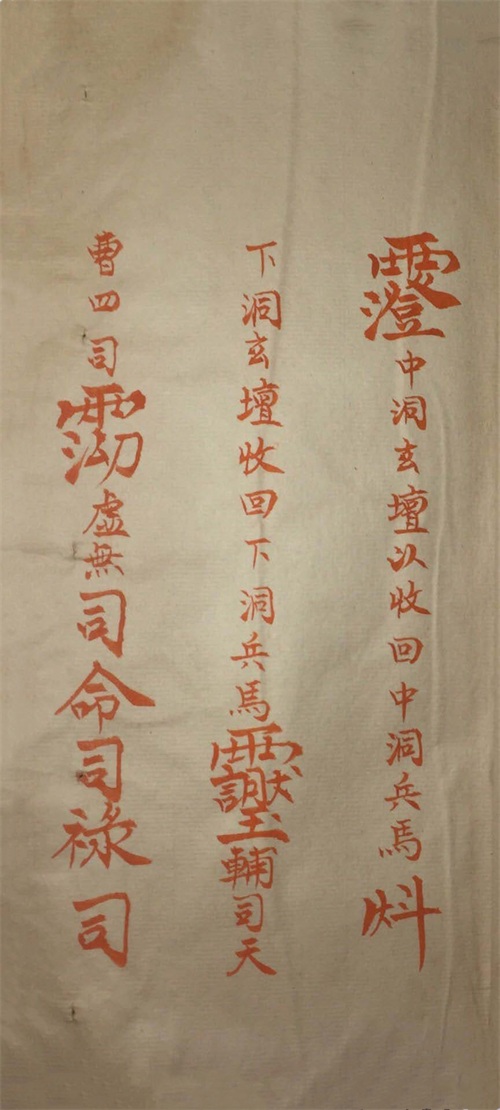 中洞玄壇以收回中洞兵馬炓
下洞玄壇收回下洞兵馬輔司天
曹四司虛無司命司祿司